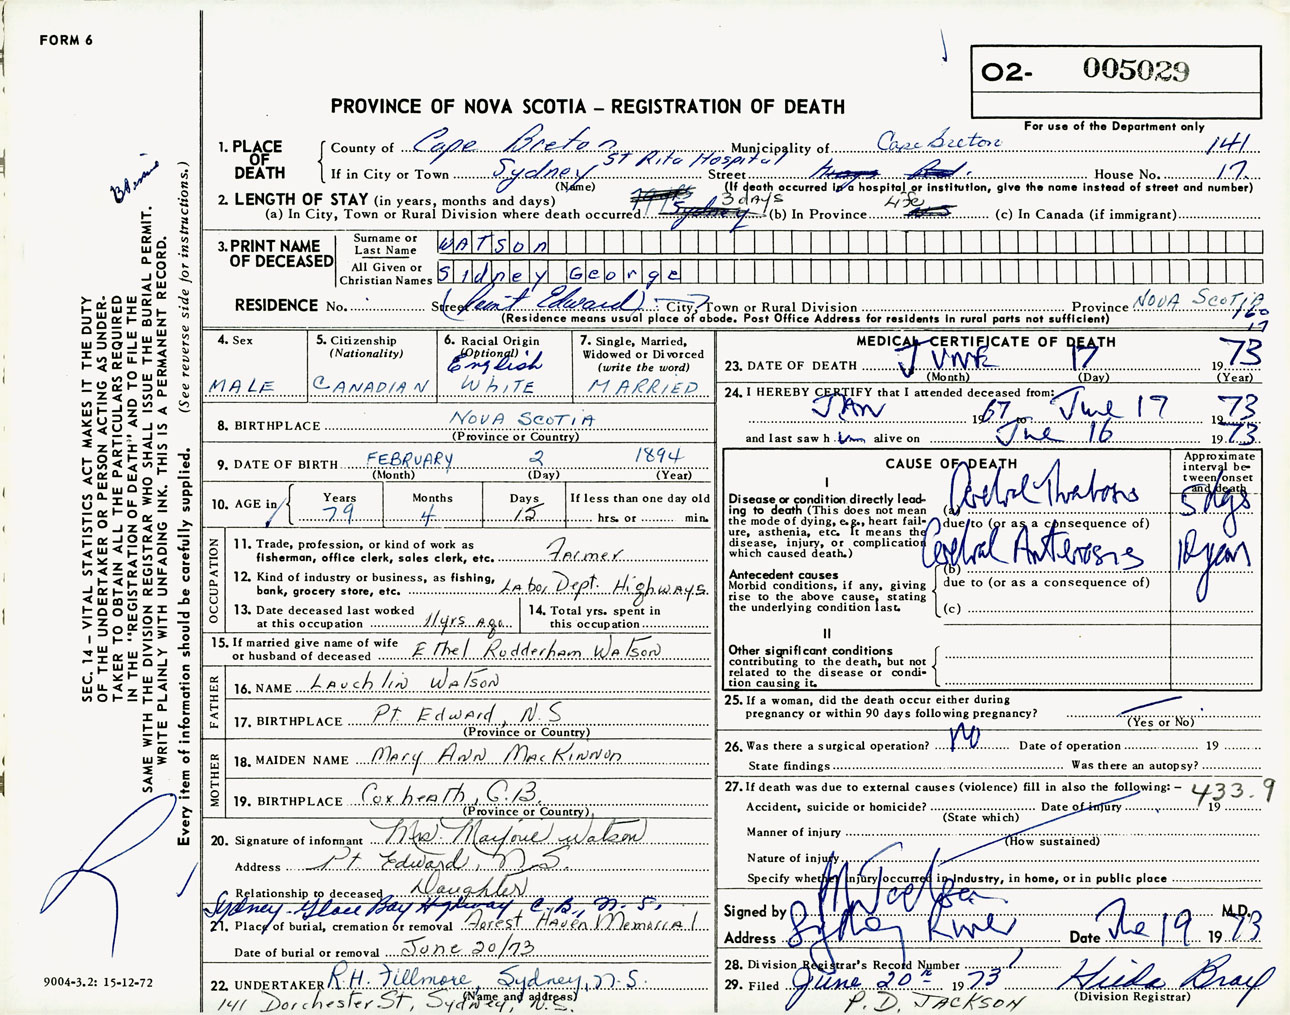 FORM 6
O2- 005029
For use of the Department only
PROVINCE OF NOVA SCOTIA – REGISTRATION OF DEATH
1. PLACE OF DEATH
County of Cape Breton Municipality of Cape Breton 141
If in City or Town Sydney St Rita Hospital Street House No. 17.
(Name) (If death occurred in a hospital or institution, give the name instead of street and number)
2. LENGTH OF STAY (in years, months and days)
(a) In City, Town or Rural Division where death occurred 3 days (b) In Province Life (c) In Canada (if immigrant)
3. PRINT NAME OF DECEASED
Surname or Last Name WATSON
All Given or Christian Names Sidney George
RESIDENCE No. Street (Point Edward) City, Town or Rural Division Province NOVA SCOTIA
(Residence means usual place of abode. Post Office Address for residents in rural parts not sufficient) 160
17
4. Sex MALE
5. Citizenship (Nationality) CANADIAN
6. Racial Origin (Optional) English WHITE
7. Single, Married, Widowed or Divorced (write the word) MARRIED
8. BIRTHPLACE NOVA SCOTIA
(Province or Country)
9. DATE OF BIRTH FEBRUARY 2 1894
(Month) (Day) (Year)
10. AGE in Years 79 Months 4 Days 15 If less than one day old hrs. or min.
OCCUPATION
11. Trade, profession, or kind of work as fisherman, office clerk, sales clerk, etc. Farmer
12. Kind of industry or business, as fishing, bank, grocery store, etc. Labor Dept. Highways
13. Date deceased last worked at this occupation 11 yrs. ago
14. Total yrs. spent in this occupation
15. If married give name of wife or husband of deceased Ethel Rudderham Watson
FATHER
16. NAME Lauchlin Watson
17. BIRTHPLACE Pt. Edward, N.S
(Province or Country)
MOTHER
18. MAIDEN NAME Mary Ann MacKinnon
19. BIRTHPLACE Coxheath, C.B.
(Province or Country)
20. Signature of informant Mrs. Marjorie Watson
Address Pt Edward, N.S.
Relationship to deceased Daughter
Sydney-Glace Bay Highway C.B., N.S.
21. Place of burial, cremation or removal Forest Haven Memorial
Date of burial or removal June 20/73
22. UNDERTAKER R.H. Fillmore, Sydney, N.S.
(Name and address)
141 Dorchester St, Sydney, N.S.
MEDICAL CERTIFICATE OF DEATH
23. DATE OF DEATH JUNE 17 1973
(Month) (Day) (Year)
24. I HEREBY CERTIFY that I attended deceased from:
JAN 1967 to June 17 1973
and last saw him alive on June 16 1973
CAUSE OF DEATH
Approximate interval between onset and death
I
Disease or condition directly leading to death (This does not mean the mode of dying, e.g., heart failure, asthenia, etc. It means the disease, injury, or complication which caused death.)
(a) Cerebral Thrombosis 5 dys
due to (or as a consequence of)
Antecedent causes
Morbid conditions, if any, giving rise to the above cause, stating the underlying condition last.
(b) Cerebral 10 years
due to (or as a consequence of)
(c)
II
Other significant conditions contributing to the death, but not related to the disease or condition causing it.
25. If a woman, did the death occur either during pregnancy or within 90 days following pregnancy?
(Yes or No)
26. Was there a surgical operation? No Date of operation 19
State findings Was there an autopsy?
27. If death was due to external causes (violence) fill in also the following:– 433.9
Accident, suicide or homicide? Date of injury 19
(State which)
Manner of injury
(How sustained)
Nature of injury
Specify whether injury occurred in Industry, in home, or in public place
Signed by M.D.
Address Sydney River Date June 19 1973
28. Division Registrar's Record Number
29. Filed June 20th 1973 Hilda Bray
(Division Registrar)
P.D. JACKSON
SEC. 14 – VITAL STATISTICS ACT MAKES IT THE DUTY
OF THE UNDERTAKER OR PERSON ACTING AS UNDERTAKER TO OBTAIN ALL THE PARTICULARS REQUIRED
IN THE "REGISTRATION OF DEATH" AND TO FILE THE
SAME WITH THE DIVISION REGISTRAR WHO SHALL ISSUE THE BURIAL PERMIT.
WRITE PLAINLY WITH UNFADING INK. THIS IS A PERMANENT RECORD.
Every item of information should be carefully supplied. (See reverse side for instructions.)
9004-3.2: 15-12-72